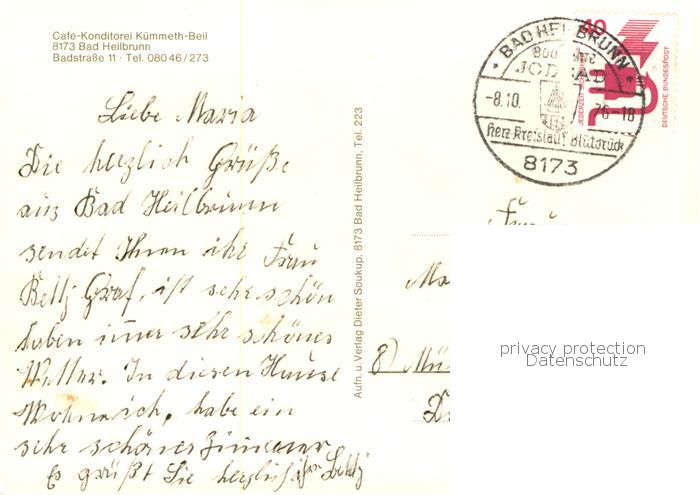 Café-Konditorei Kümmeth-Beil
8173 Bad Heilbrunn
Badstraße 11 · Tel. 08046/273
Liebe Maria
Die herzlich Grüße
aus Bad Heilbrunn
sendet Ihnen ihr Frau
Betty Graf, ist sehr schön
haben imer sehr schönes
Wetter. In diesen Hause
Wohne ich, habe ein
sehr schönes Zimmer
Es grüßt Sie herzlich ihr Betty
Aufn. u. Verlag Dieter Soukup, 8173 Bad Heilbrunn, Tel. 223
BAD HEILBRUNN
JODBAD
-8.10. 76-18
Herz Kreislauf Blutdruck
8173
40
JEDERZEIT
DEUTSCHE BUNDESPOST
Frau
Ma
8) Mü
privacy protection
Datenschutz